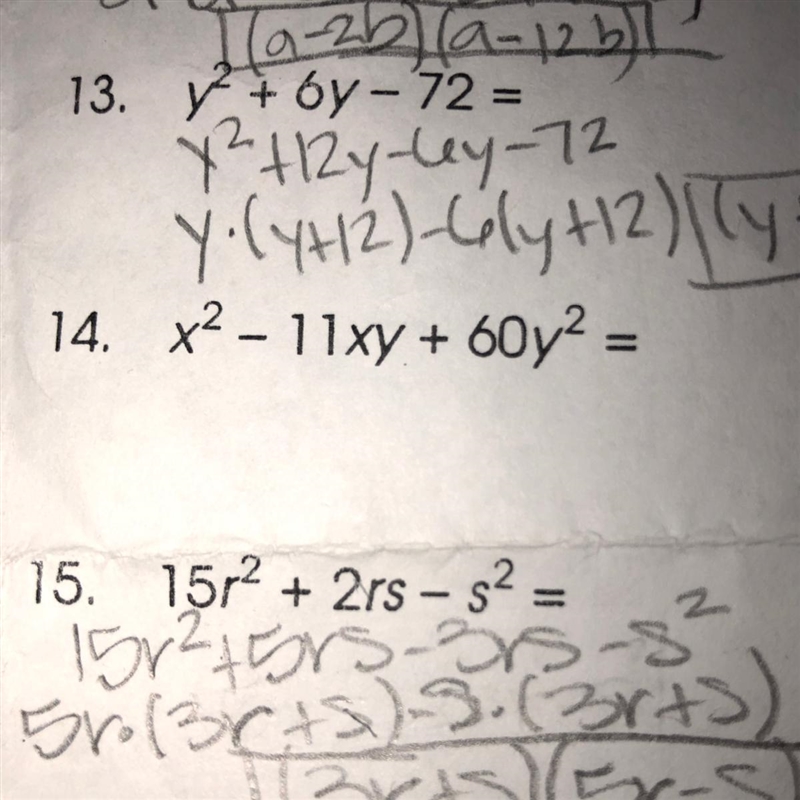 (a-2b)(a-12b)
13. y² + 6y – 72 =
y²+12y-6y-72
y·(y+12)-6(y+12) (y
14. x² – 11xy + 60y² =
15. 15r² + 2rs – s² =
15r²+5rs-3rs-s²
5r·(3r+s)-s·(3r+s)
(3r+s)(5r-s